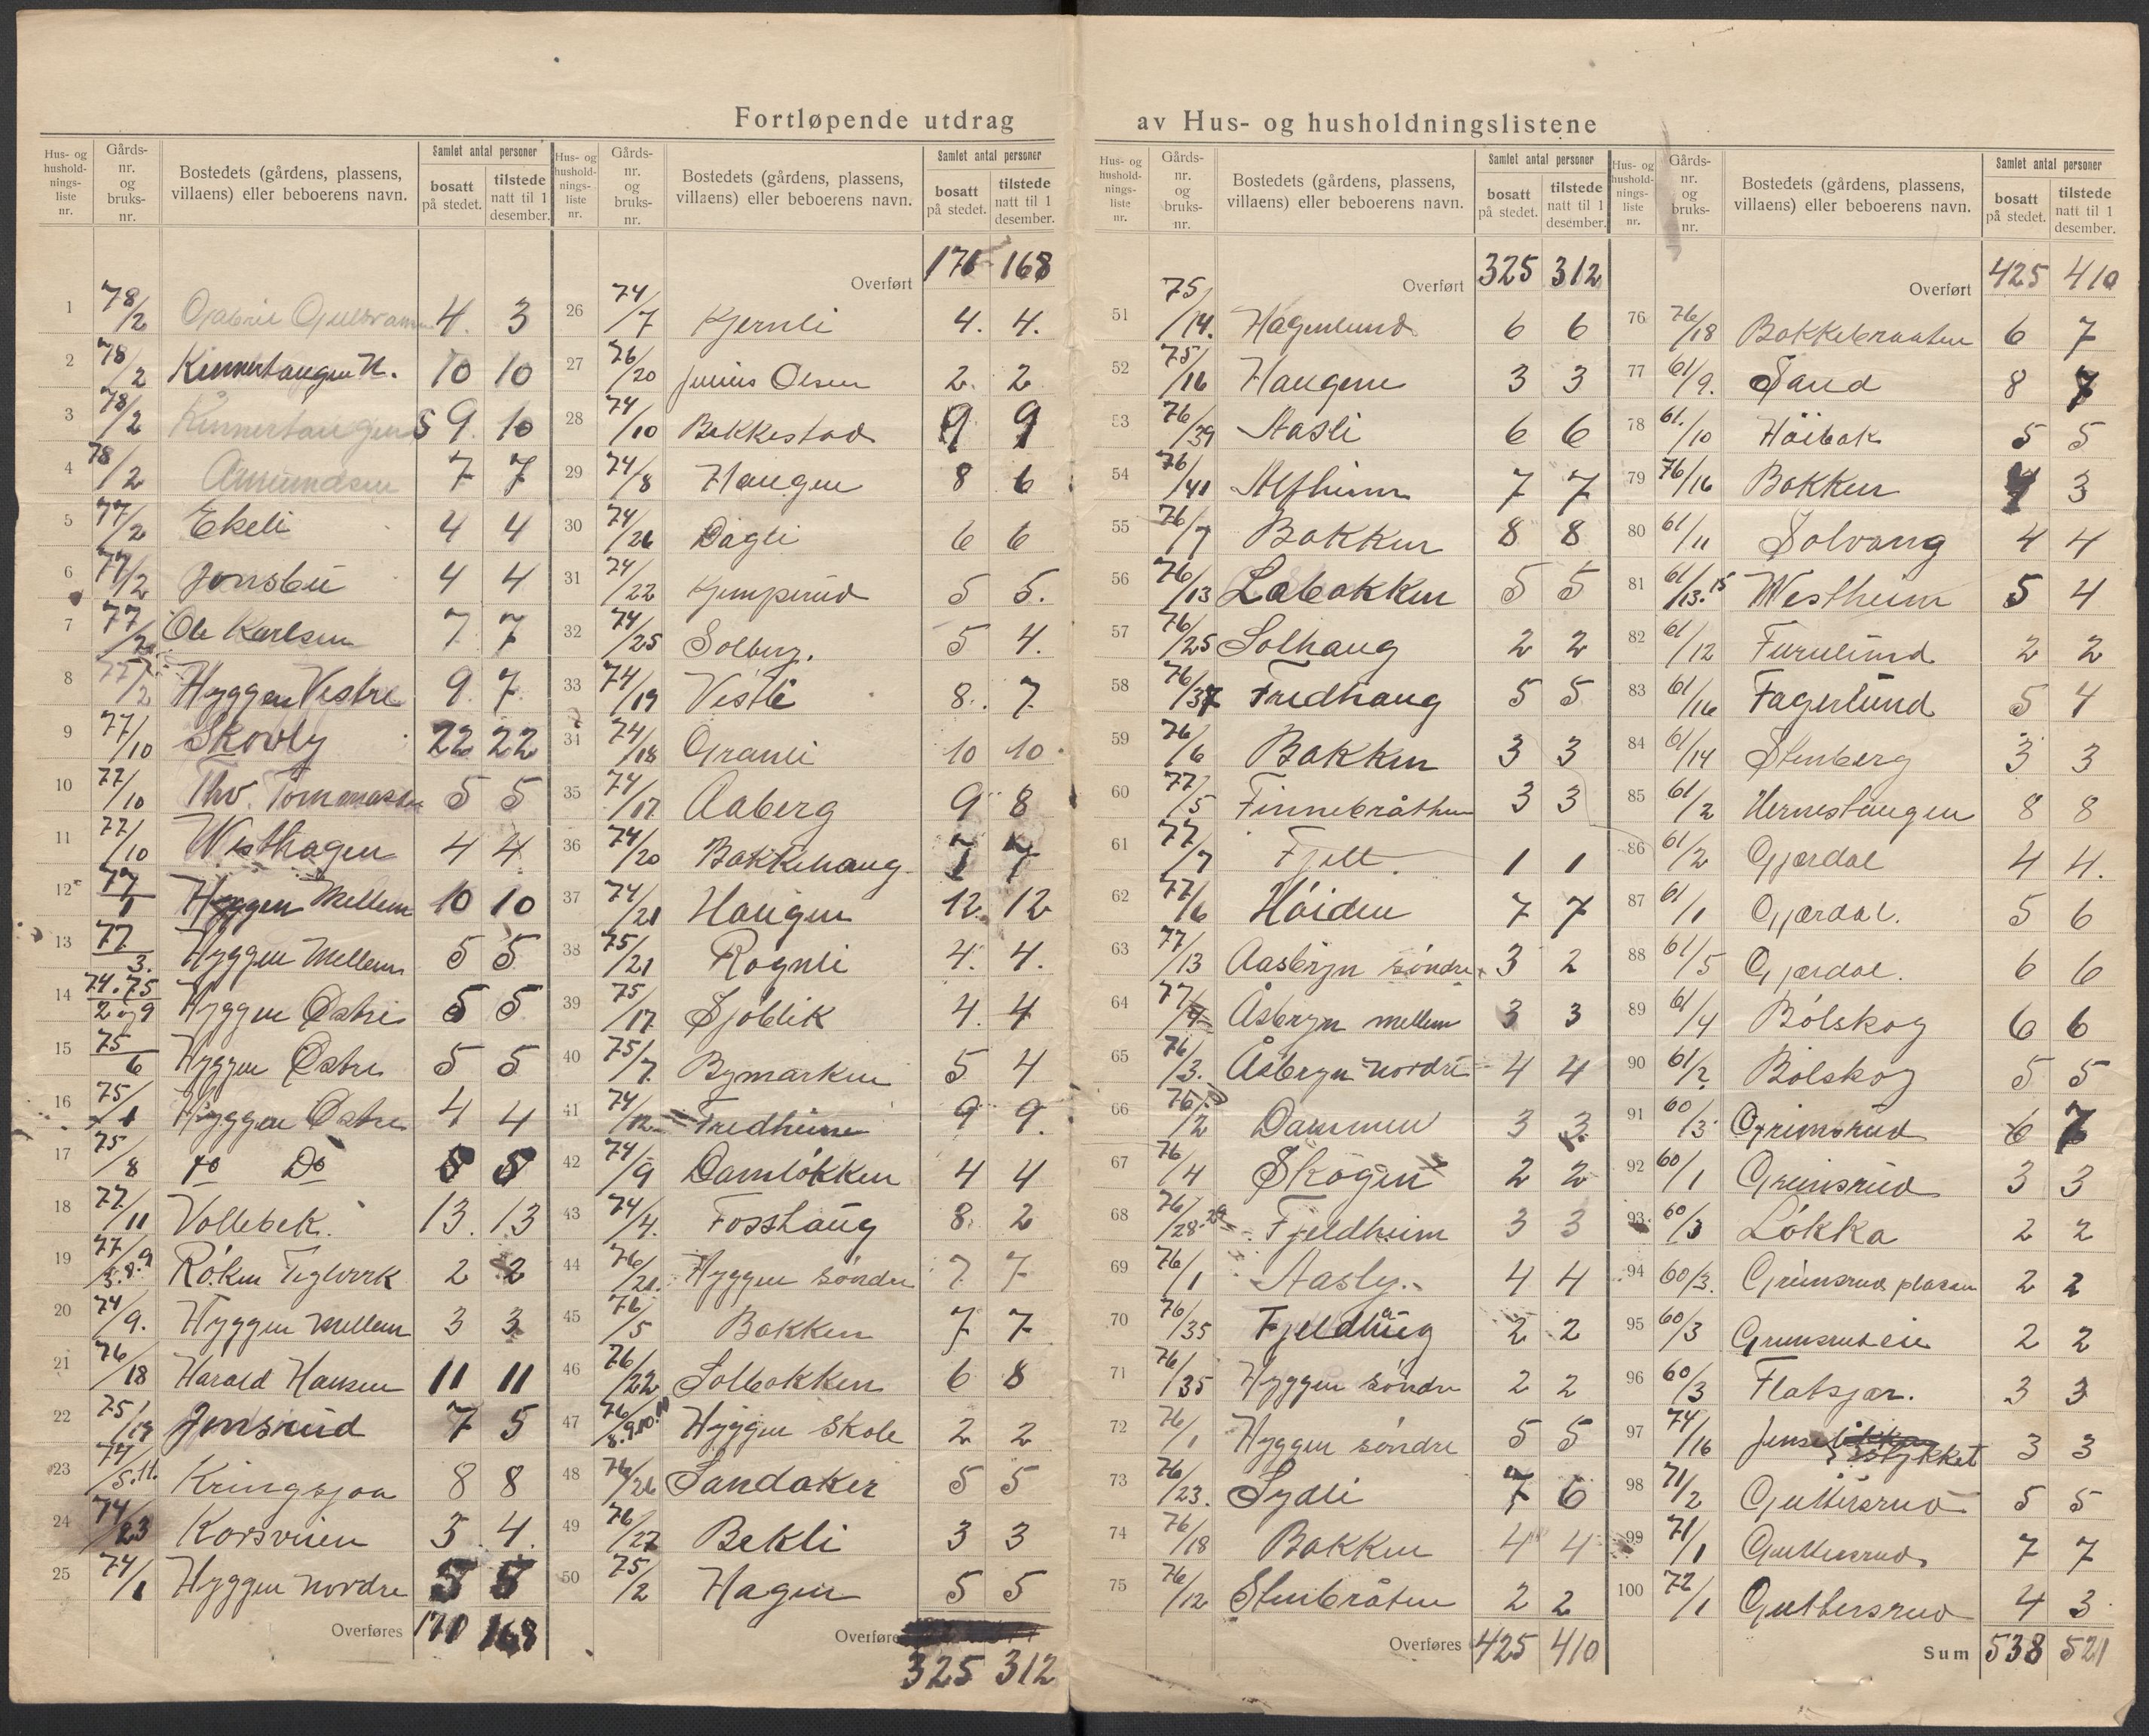 Fortløpende utdrag av Hus- og husholdningslistene
Hus- og hushold-nings-liste nr. Gårds-nr. og bruks-nr. Bostedets (gårdens, plassens, villaens) eller beboerens navn. Samlet antal personer bosatt på stedet. tilstede natt til 1 desember.
1 78/2 4. 3
2 78/2 Kinnertangen N. 10 10
3 78/2 Kinnertangen S 9. 10
4 78/2 Amundsen 7 7
5 77/2 Ekeli 4 4
6 77/2 Jonsbu 4 4
7 77/2 Ole Karlsen 7 7
8 77/2 Hyggen Vestre 9 7.
9 77/10 Skovly 22 22
10 77/10 Thv. 5 5
11 77/10 Westhagen 4 4
12 77/1 Hyggen Mellem 10 10
13 77/3. Hyggen Mellem 5 5
14 74.75 2 og 9 Hyggen Østre 5 5
15 75/6 Hyggen Østre 5 5
16 75/1 Hyggen Østre 4 4
17 75/8 Do Do 5 5
18 77/11 Vollebek. 13. 13
19 77/3.8.9 Røken Teglverk 2 2
20 74/9. Hyggen Mellem 3 3
21 76/18 Harald Hansen 11 11
22 75/19 Jonsrud 7 5
23 74/5.11. Kringsjaa 8 8
24 74/23 Korsveien 3 4.
25 74/1 Hyggen Nordre 5 5
Overføres 170 168
Hus- og hushold-nings-liste nr. Gårds-nr. og bruks-nr. Bostedets (gårdens, plassens, villaens) eller beboerens navn. Samlet antal personer bosatt på stedet. tilstede natt til 1 desember.
Overført 170 168
26 74/7 Kjernli 4. 4.
27 76/20 Julius Olsen 2. 2
28 74/10 Bakkestad 9 9
29 74/8 Haugen 8 6
30 74/26 Dagli 6 6
31 74/22 Kjemperud 5 5.
32 74/25 Solberg. 5 4.
33 74/19 Vestli 8. 7
34 74/18 Granli 10 10
35 74/17 Aaberg 9 8
36 74/20 Bakkehaug 7 7
37 74/21 Haugen 12. 12
38 75/21 Rognli 4. 4.
39 75/17 Sjøblik 4. 4
40 75/7. Bymarken 5 4
41 74/12 Fredheim 9 9.
42 74/9 Damløkken 4 4
43 74/4. Fosshaug 8. 2
44 76/21. Hyggen søndre 7 7
45 76/5 Bakken 7 7
46 76/22 Solbakken 6 8
47 76/8.9.10. Hyggen Skole 2 2
48 76/26 Sandaker 5 5
49 76/27 Bekli 3 3
50 75/2 Hagen 5 5
Overføres 325 312
Hus- og hushold-nings-liste nr. Gårds-nr. og bruks-nr. Bostedets (gårdens, plassens, villaens) eller beboerens navn. Samlet antal personer bosatt på stedet. tilstede natt til 1 desember.
Overført 325 312
51 75/14. Hagenlund 6 6
52 75/16 Haugene 3 3
53 76/39 Aasli 6 6
54 76/41 Alfheim 7 7
55 76/7 Bakken 8 8
56 76/13 Labakken 5 5
57 76/25 Solhaug 2 2
58 76/37 Fredhaug 5 5
59 76/6 Bakken 3 3
60 77/5 Finnebråthen 3 3
61 77/7 Fjell 1 1
62 77/6 Høiden 7 7
63 77/13 Aasbryn søndre 3 2
64 77/4 Åsbryn mellem 3 3
65 76/3. Åsbryn nordre 4 4
66 76/2 Dammen 3 3
67 76/4 Skogen 2 2
68 76/28.29 Fjeldheim 3 3
69 76/1 Aasly. 4 4
70 76/35 Fjeldhaug 2 2
71 76/35 Hyggen søndre 2 2
72 76/1 Hyggen søndre 5 5
73 76/23. Sydli 7 6
74 76/18 Bakken 4 4
75 76/12 Stenbråten 2 2
Overføres 425 410
Hus- og hushold-nings-liste nr. Gårds-nr. og bruks-nr. Bostedets (gårdens, plassens, villaens) eller beboerens navn. Samlet antal personer bosatt på stedet. tilstede natt til 1 desember.
Overført 425 410
76 76/18 Bakkebraaten 6 7
77 61/9. Sand 8 7
78 61./10 Høibak 5 5
79 76/16 Bakken 4 3
80 61/11 Solvang 4 4
81 61/13.15 Westheim 5 4
82 61/12 Furulund 2 2
83 61/16 Fagerlund 5 4
84 61/14 Stenberg 3 3
85 61/2 Hernestangen 8 8
86 61/2 Gjærdal 4 4.
87 61/1 Gjærdal. 5 6
88 61/5 Gjærdal. 6 6
89 61/4 Bølskog 6 6
90 61/2 Bølskog 5 5
91 60/3 Grimsrud 6 7
92 60/1 Grimsrud 3 3
93 60/3 Løkka 2 2
94 60/3. Grimsrud plassen 2 2
95 60/3 Grimsrudeie 2 2
96 60/3 Flatsjær. 3 3
97 74/16 stykket 3 3
98 71/2 Guttersrud 5 5
99 71/1 Guttersrud 7 7
100 72/1 Guttersrud 4 3
Sum 538 521